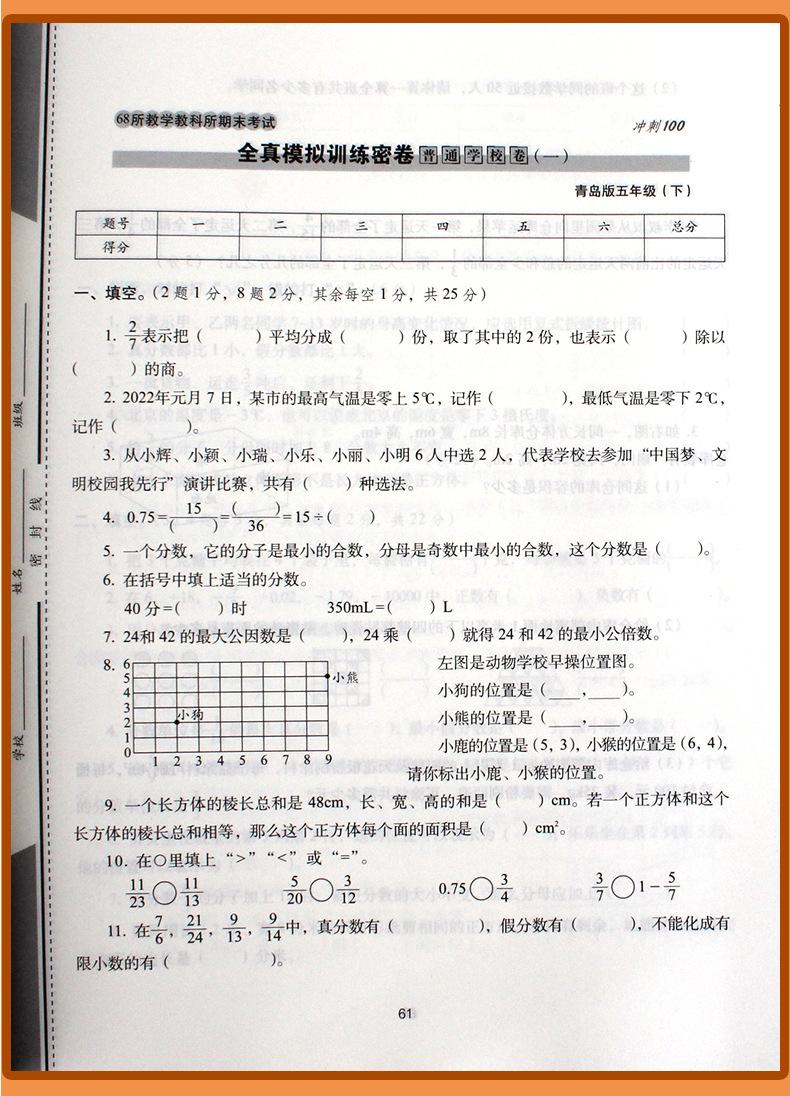 68所教学教科所期末考试
冲刺100
全真模拟训练密卷 普通学校卷(一)
青岛版五年级(下)
题号 一 二 三 四 五 六 总分
得分
一、填空。(2题1分，8题2分，其余每空1分，共25分)
1. 2/7表示把( )平均分成( )份，取了其中的2份，也表示( )除以
( )的商。
2. 2022年元月7日，某市的最高气温是零上5℃，记作( )，最低气温是零下2℃，
记作( )。
3. 从小辉、小颖、小瑞、小乐、小丽、小明6人中选2人，代表学校去参加“中国梦、文
明校园我先行”演讲比赛，共有( )种选法。
4. 0.75=15/( )=( )/36=15÷( )
5. 一个分数，它的分子是最小的合数，分母是奇数中最小的合数，这个分数是( )。
6. 在括号中填上适当的分数。
40分=( )时 350mL=( )L
7. 24和42的最大公因数是( )，24乘( )就得24和42的最小公倍数。
8. 6
5
4
3
2
1
0
1 2 3 4 5 6 7 8 9
小狗
小熊
左图是动物学校早操位置图。
小狗的位置是(____,____)。
小熊的位置是(____,____)。
小鹿的位置是(5, 3)，小猴的位置是(6, 4)，
请你标出小鹿、小猴的位置。
9. 一个长方体的棱长总和是48cm，长、宽、高的和是( )cm。若一个正方体和这个
长方体的棱长总和相等，那么这个正方体每个面的面积是( )cm²。
10. 在○里填上“>”“<”或“=”。
11/23○11/13 5/20○3/12 0.75○3/4 3/7○1-5/7
11. 在7/6，21/24，9/13，9/14中，真分数有( )，假分数有( )，不能化成有
限小数的有( )。
61
班级
姓名
学校
密封线